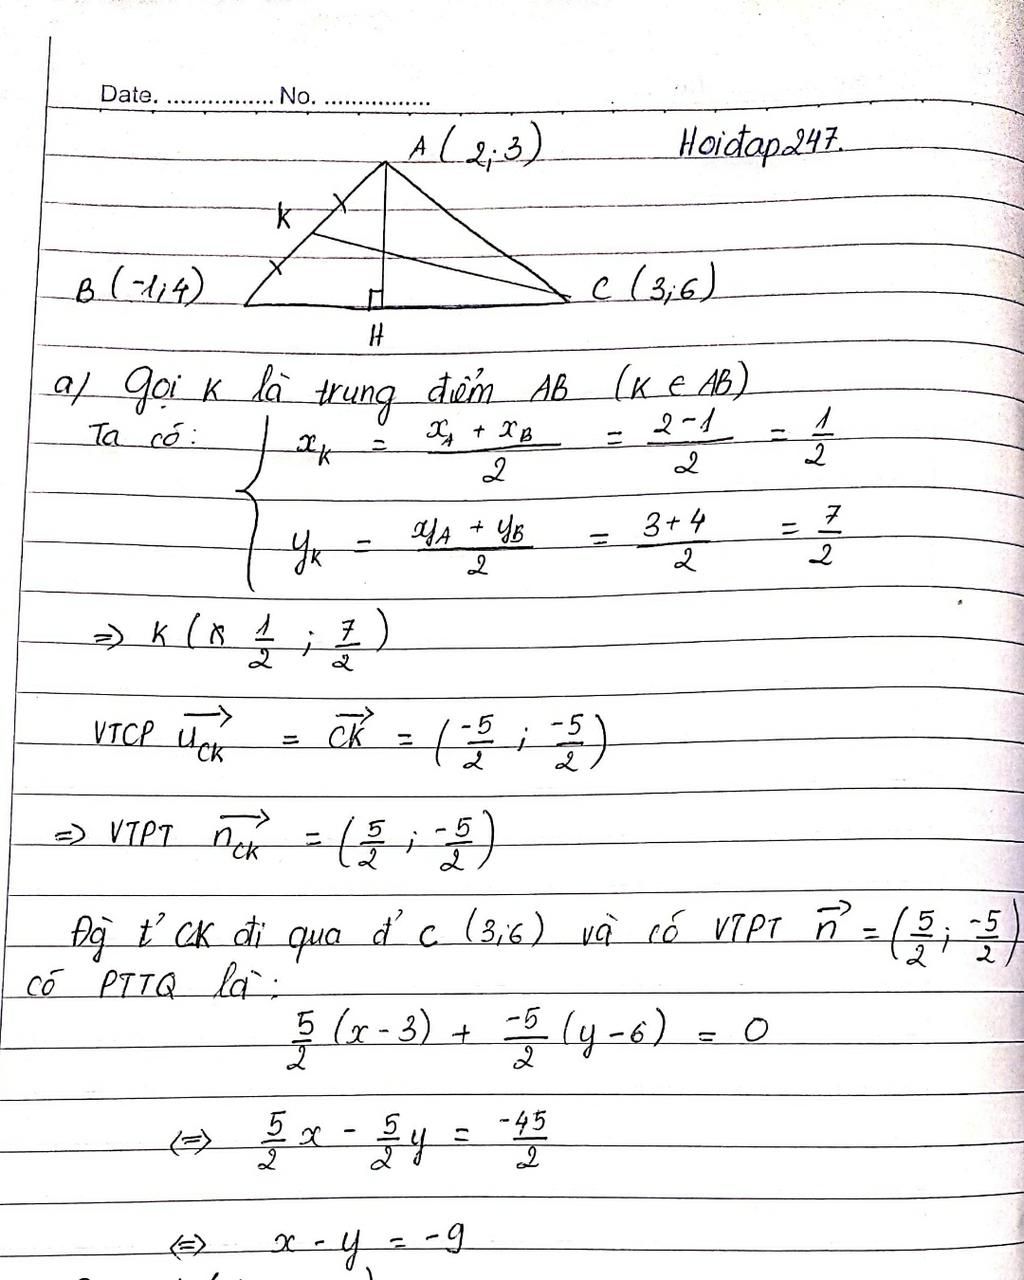 Date. ................ No. ................
A (2;3) Hoiđap247.
K
B (-1;4) C (3;6)
H
a) Gọi K là trung điểm AB (K ∈ AB)
Ta có: { x_K = (x_A + x_B)/2 = (2-1)/2 = 1/2
y_K = (y_A + y_B)/2 = (3+4)/2 = 7/2
=> K ( 1/2 ; 7/2 )
VTCP u_CK→ = CK→ = (-5/2 ; -5/2)
=> VTPT n_CK→ = (5/2 ; -5/2)
Đg t' CK đi qua đ' C (3;6) và có VTPT n→ = (5/2 ; -5/2)
có PTTQ là:
5/2 (x - 3) + -5/2 (y - 6) = 0
<=> 5/2 x - 5/2 y = -45/2
<=> x - y = -9